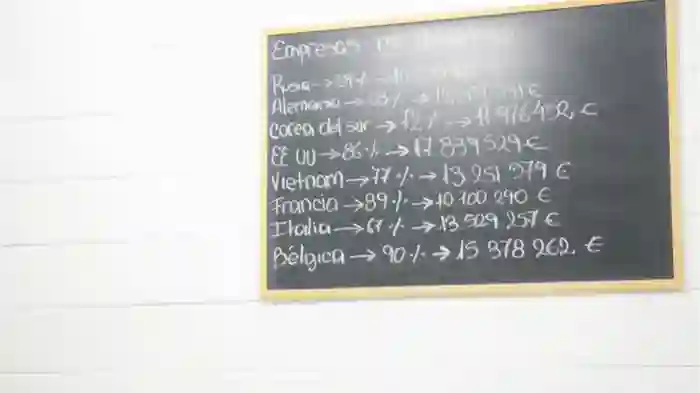 Empresas
Rusia →
Alemania → €
Corea del sur → 12 % → 11 976 432, €
EE UU → 86 % → 17 839 529 €
Vietnam → 77 % → 13 251 979 €
Francia → 89 % → 10 100 290 €
Italia → 67 % → 13 529 257 €
Bélgica → 90 % → 15 378 262, €